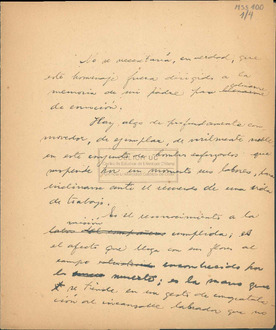 MSS 100
1/4
No se necesitaría, en verdad, que
este homenaje fuera dirigido a la
memoria de mi padre para
de emoción.
Hay algo de profundamente con
movedor, de ejemplar, de virilmente noble
en este conjunto de hombres esforzados que
suspende por un momento sus labores, para
inclinarse ante el recuerdo de una vida
de trabajo.
Es el reconocimiento a la
misión
labor del campesino cumplida; es
el afecto que llega con sus flores al
campo entristecido por
lo muerto; es la mano que
se tiende en un gesto de congratula
ción al incansable labrador que no